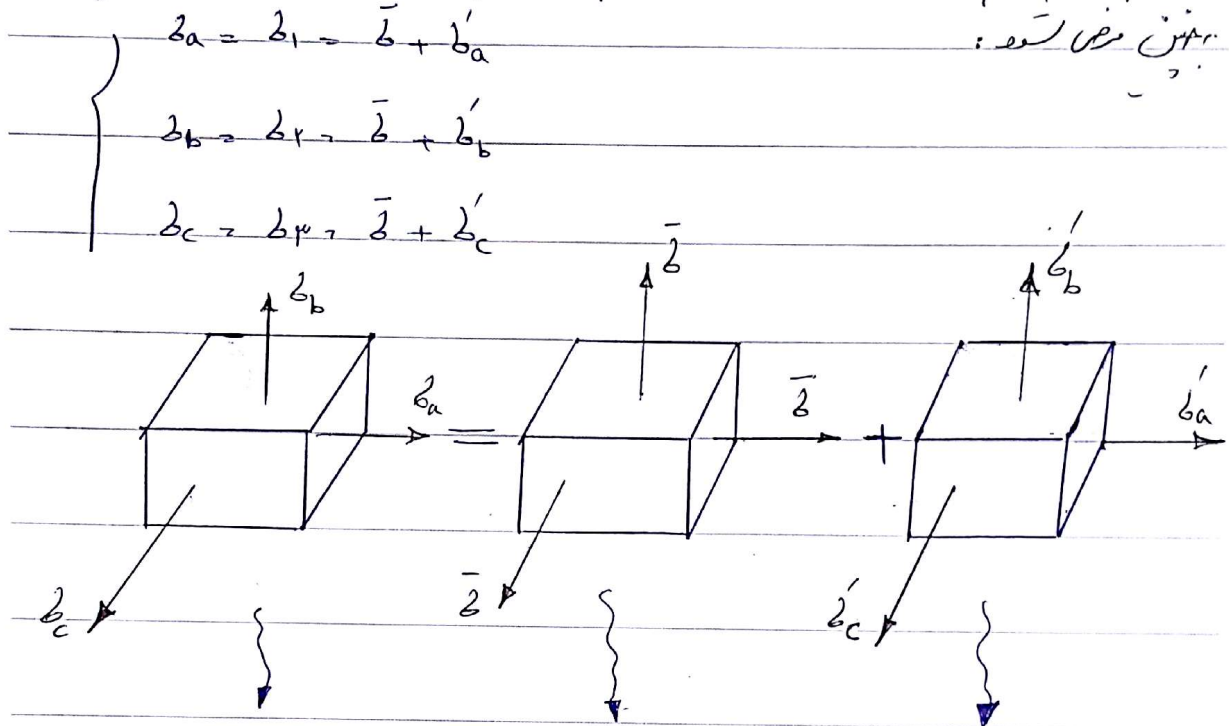 چنین فرض شود :
σa = σ۱ = σ̄ + σ′a
σb = σ۲ = σ̄ + σ′b
σc = σ۳ = σ̄ + σ′c
σb σ̄ σ′b
σa = σ̄ + σ′a
σc σ̄ σ′c